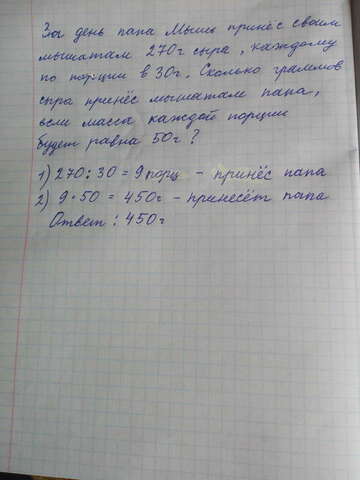 За день папа Мышь принёс своим
мышатам 270г сыра, каждому
по порции в 30г. Сколько граммов
сыра принёс мышатам папа,
если масса каждой порции
будет равна 50г?
1) 270:30=9порц - принёс папа
2) 9·50=450г - принесёт папа
Ответ: 450г